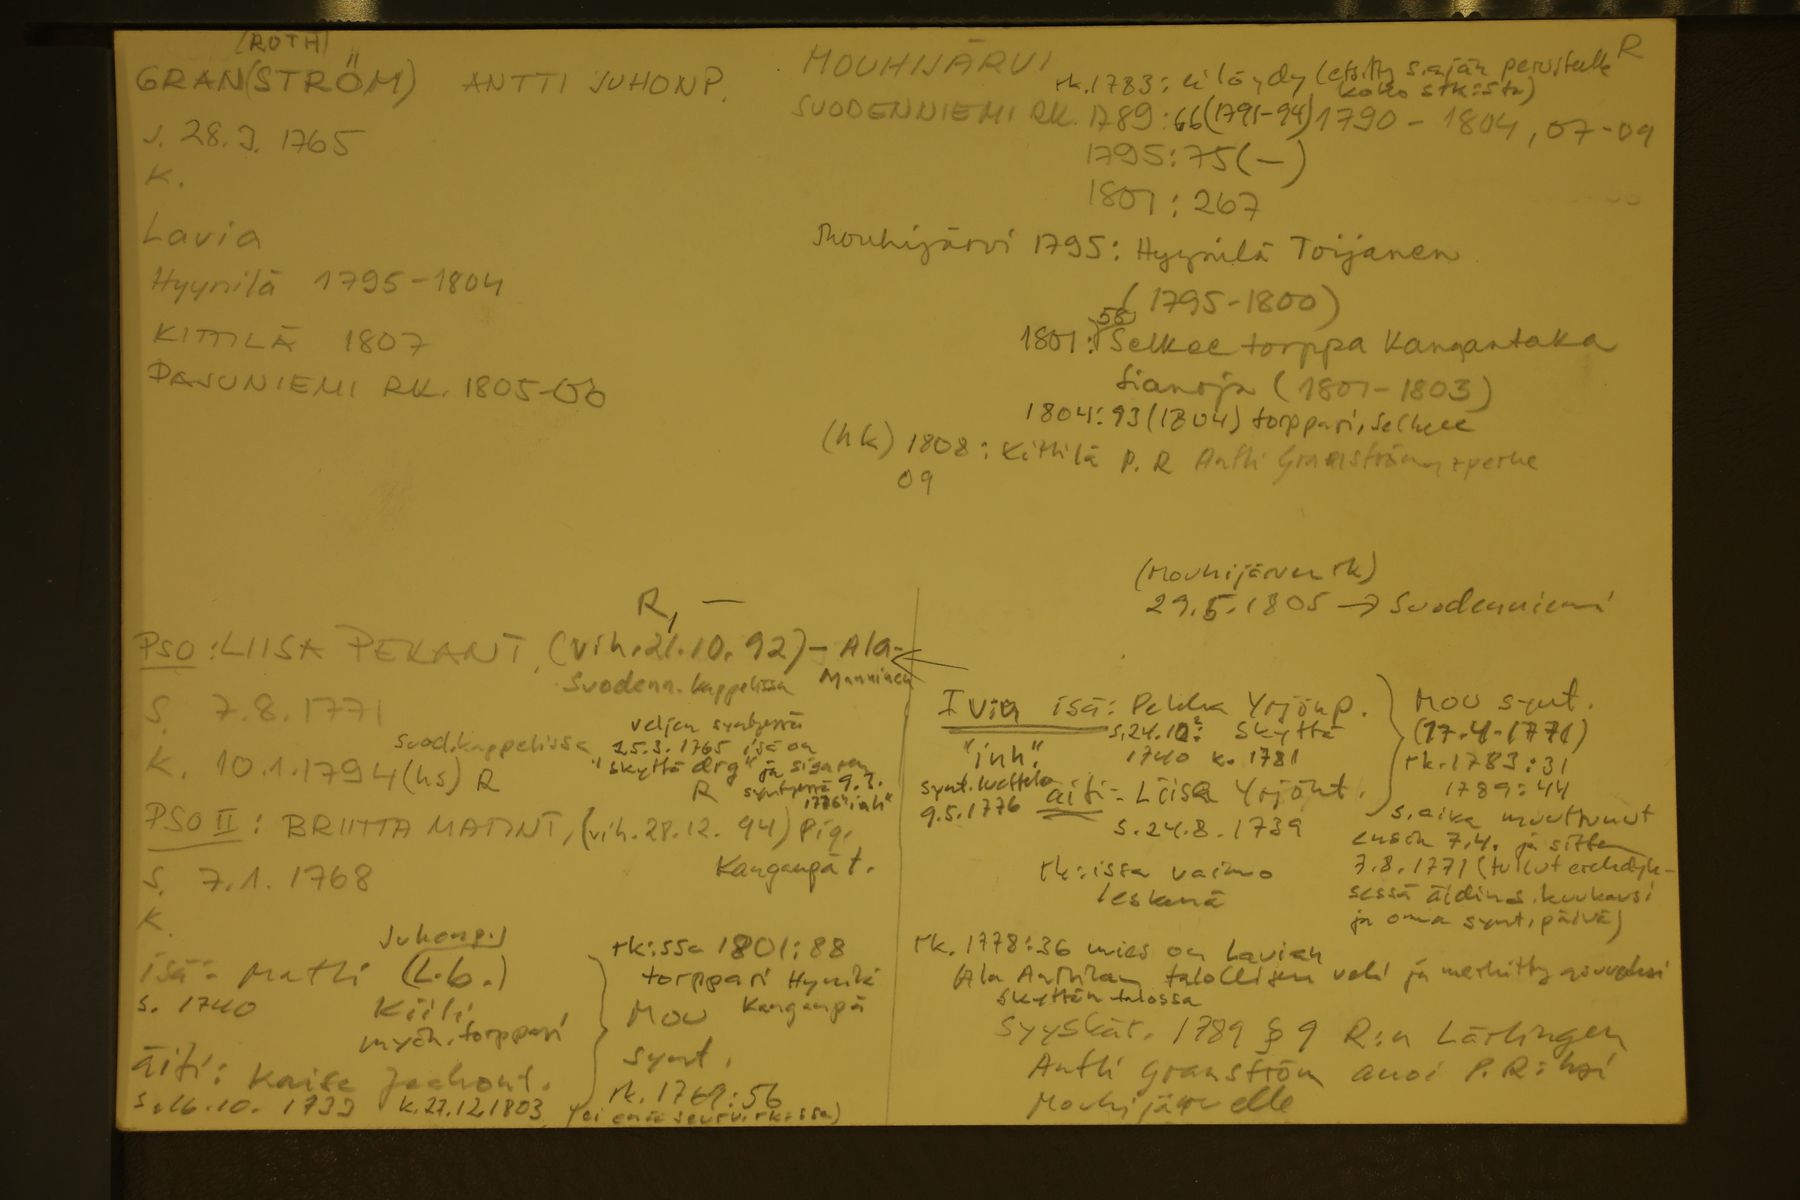 (ROTH)
GRAN(STRÖM) ANTTI JUHONP.
S. 28.3. 1765
K.
Lavia
Hyynilä 1795-1804
KITTILÄ 1807
PAJUNIEMI RK. 1805-06
R
MOUHIJÄRVI
rk.1783: ei löydy (etsitty s.ajan perusteella
koko srk:sta)
SUODENNIEMI RK. 1789:66(1791-94) 1790-1804, 07-09
1795:75(-)
1801: 267
Mouhijärvi 1795: Hyynilä Toijanen
(1795-1800)
58
1801: Selkee torppa Kangantaka
Sianoja (1801-1803)
1804:93(1804) torppari, Selkee
(hk) 1808: Kittilä P. R Antti Granström, +perhe
09
(Mouhijärven rk)
29.5.1805 → Suodenniemi
R, —
PSO: LIISA PEKANT, (vih.21.10.92) - Ala-
Suodenn. kappelissa Manninen
S. 7.8.1771
suod.kappelissa
K. 10.1.1794(hs) R
veljen syntyessä
25.3.1765 isä on
"skyttä drg" ja sisaren
R syntyessä 9.3.
1776 "inh"
PSO II: BRIITTA MATINT, (vih.28.12. 94) Pig.
Kanganpä t.
S. 7.1.1768
K.
isä: Matti Juhonp.
(L.b.)
s. 1740 Kiili
myöh. torppari
äiti: Kaisa Jaakont.
s.16.10. 1733 k.27.12.1803
rk:ssa 1801:88
torppari Hynilä
Kanganpä
MOU
synt.
rk.1769:56
(ei enää seur.rk:ssa)
I via isä: Pekka Yrjönp.
s.24.10? Skyttä
1740 k. 1781
"inh."
synt.luettelo
9.5.1776
äiti: Liisa Yrjönt.
s.24.8.1739
rk:issa vaimo
leskenä
MOU synt.
(17.4.1771)
rk.1783:31
1789:44
s.aika muuttunut
ensin 7.4. ja sitten
7.8.1771 (tullut erehdyk-
sessä äidin s.kuukausi
ja oma synt.päivä)
rk. 1778:36 mies on Lavian
Ala Anttilan talollisen veli ja merkitty asuvaksi
Skyttän talossa
Syyskär. 1789 § 9 R:n Lärlingen
Antti Granström anoi P.R:ksi
Mouhijärvelle